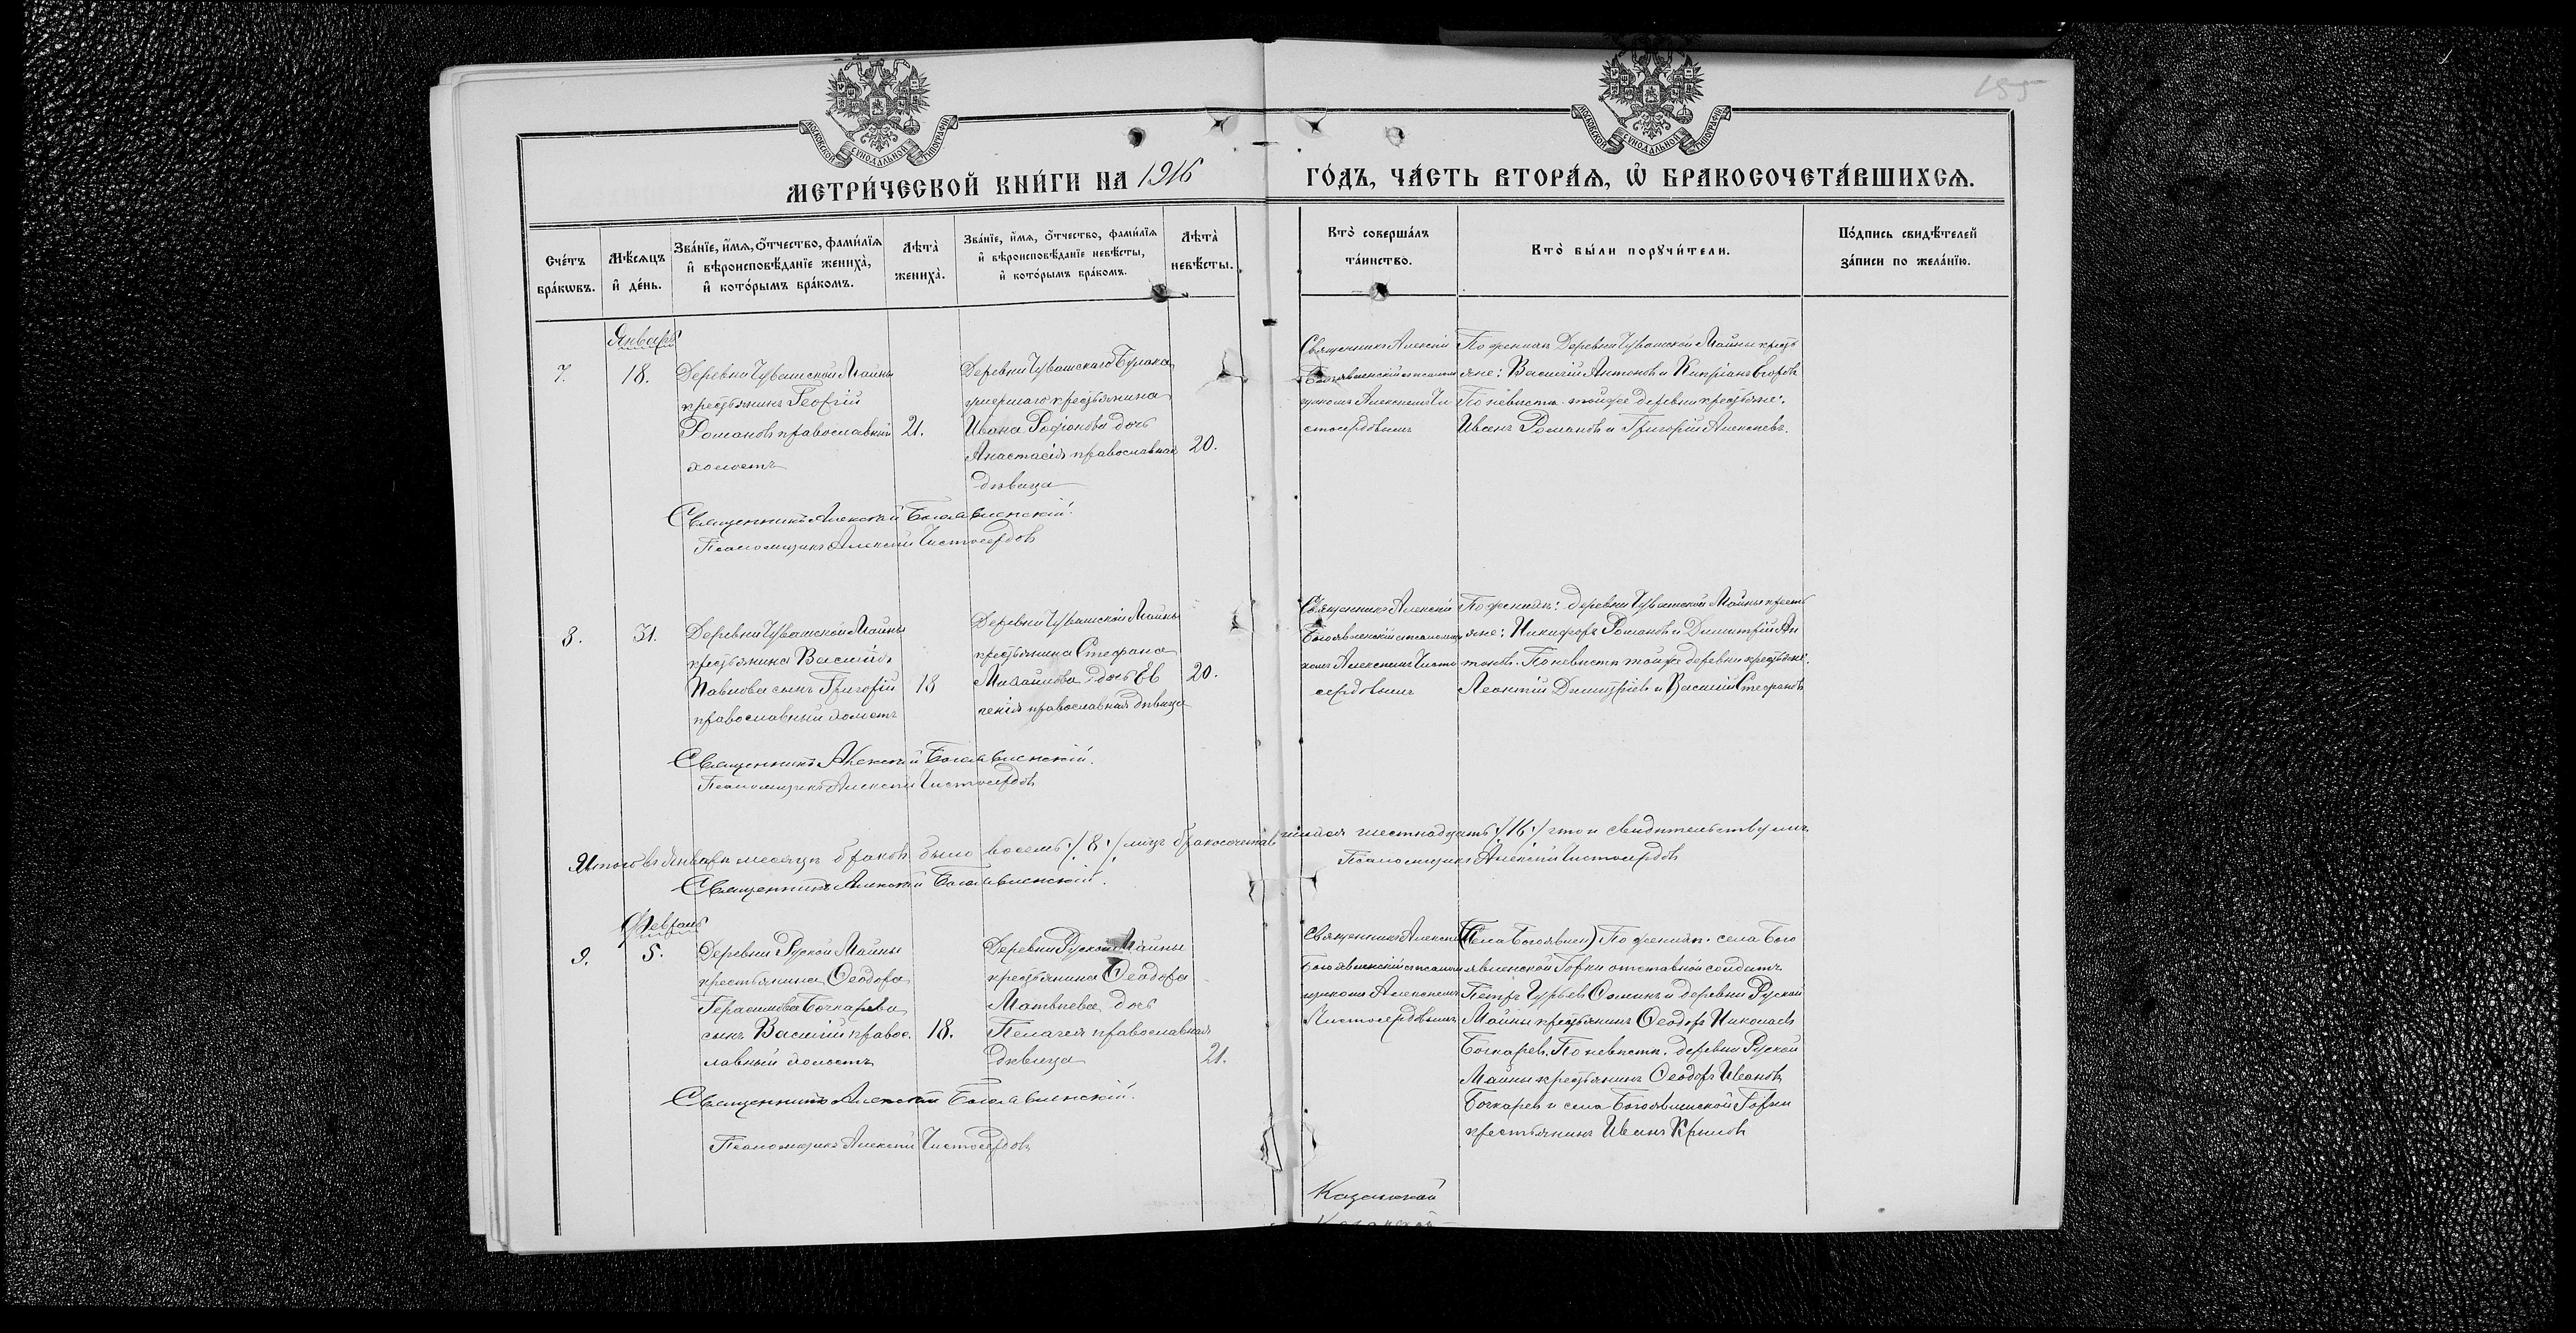 155
МОСКОВСКОЙ СѴНОДАЛЬНОЙ ТИПОГРАФІИ
МОСКОВСКОЙ СѴНОДАЛЬНОЙ ТИПОГРАФІИ
МЕТРИ́ЧЕСКОЙ КНИ́ГИ НА 1916 ГО́ДЪ, ЧА́СТЬ ВТОРА́Ѧ, Ѽ БРАКОСОЧЕТА́ВШИХСѦ.
Сче́тъ
бра́кѡвъ.
Мѣ́сѧцъ
и҆ де́нь.
Зва́нїе, и҆́мѧ, ѻ҆́тчество, фами́лїѧ
и҆ вѣроисповѣ́данїе жениха̀,
и҆ кото́рымъ бра́комъ.
Лѣта̀
жениха̀.
Зва́нїе, и҆́мѧ, ѻ҆́тчество, фами́лїѧ
и҆ вѣроисповѣ́данїе невѣ́сты,
и҆ кото́рымъ бра́комъ.
Лѣта̀
невѣ́сты.
Кто̀ соверша́лъ
та́инство.
Кто̀ бы́ли порꙋчи́тели.
По́дпись свидѣ́телей
за́писи по жела́нїю.
Январь
7.
18.
Деревни Чувашской Майны
крестьянинъ Георгій
Романовъ православный
холостъ
21.
Деревни Чувашскаго Бурака
умершаго крестьянина
Ивана Родіонова дочь
Анастасія православная
дѣвица
20.
Священникъ Алексій
Богоявленскій съ псалом
щикомъ Алексѣемъ Чи
стосердовымъ
По женихѣ Деревни Чувашской Майны кресть
яне: Василій Антоновъ и Кипріанъ Егоровъ
По невѣстѣ той же деревни крестьяне:
Иванъ Романовъ и Григорій Алексѣевъ.
Священникъ Алексій Богоявленскій.
Псаломщикъ Алексѣй Чистосердовъ
8.
31.
Деревни Чувашской Майны
крестьянина Василія
Павлова сынъ Григорій
православный холостъ
18
Деревни Чувашской Майны
крестьянина Стефана
Михайлова дочь Ев
генія православная дѣвица
20.
Священникъ Алексій
Богоявленскій съ псаломщи
комъ Алексѣемъ Чисто
сердовымъ
По женихѣ: деревни Чувашской Майны кресть
яне: Никифоръ Романовъ и Димитрій Ан
тоновъ. По невѣстѣ той же деревни крестьяне.
Леонтій Димитріевъ и Василій Стефановъ
Священникъ Алексій Богоявленскій.
Псаломщикъ Алексѣй Чистосердовъ
Итого въ Январѣ мѣсяцѣ браковъ было восемь /8/ лицъ бракосочетавшихся шестнадцать /16/ что и свидѣтельствуемъ
Священникъ Алексій Богоявленскій.
Псаломщикъ Алексѣй Чистосердовъ
Февраль
9.
5.
Деревни Руской Майны
крестьянина Ѳеодора
Герасимова Бочкарева
сынъ Василій правос
лавный холостъ
18.
Деревни Руской Майны
крестьянина Ѳеодора
Матвѣева дочь
Пелагея православная
дѣвица
21.
Священникъ Алексій
Богоявленскій съ псалом
щикомъ Алексѣемъ
Чистосердовымъ
(Села Богоявлен) По женихѣ. села Бого
явленской Горки отставной солдатъ
Петръ Гурьевъ Соминъ и деревни Руской
Майны крестьянинъ Ѳеодоръ Николаевъ
Бочкаревъ. По невѣстѣ. деревни Руской
Майны крестьянинъ Ѳеодоръ Ивановъ
Бочкаревъ и села Богоявленской Горки
крестьянинъ Иванъ Крыловъ
Священникъ Алексій Богоявленскій.
Псаломщикъ Алексѣй Чистосердовъ
Казанской